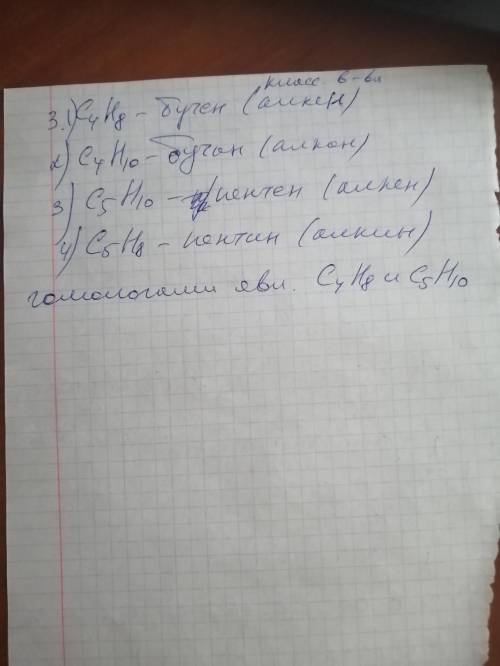 класс в-ва
3.1) C4H8 - бутен (алкен)
2) C4H10 - бутан (алкан)
3) C5H10 - пентен (алкен)
4) C5H8 - пентин (алкин)
гомологами явл. C4H8 и C5H10